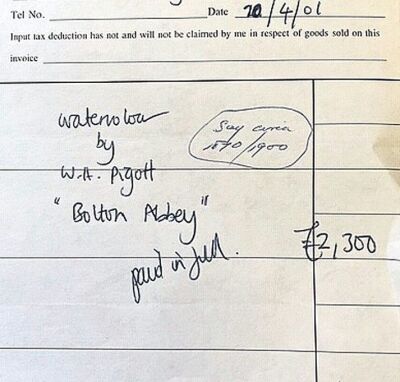 Tel No. Date 20/4/01
Input tax deduction has not and will not be claimed by me in respect of goods sold on this
invoice
watercolour
by
W.H. Pigott
"Bolton Abbey"
Say circa
1890/1900
£2,300
paid in full.